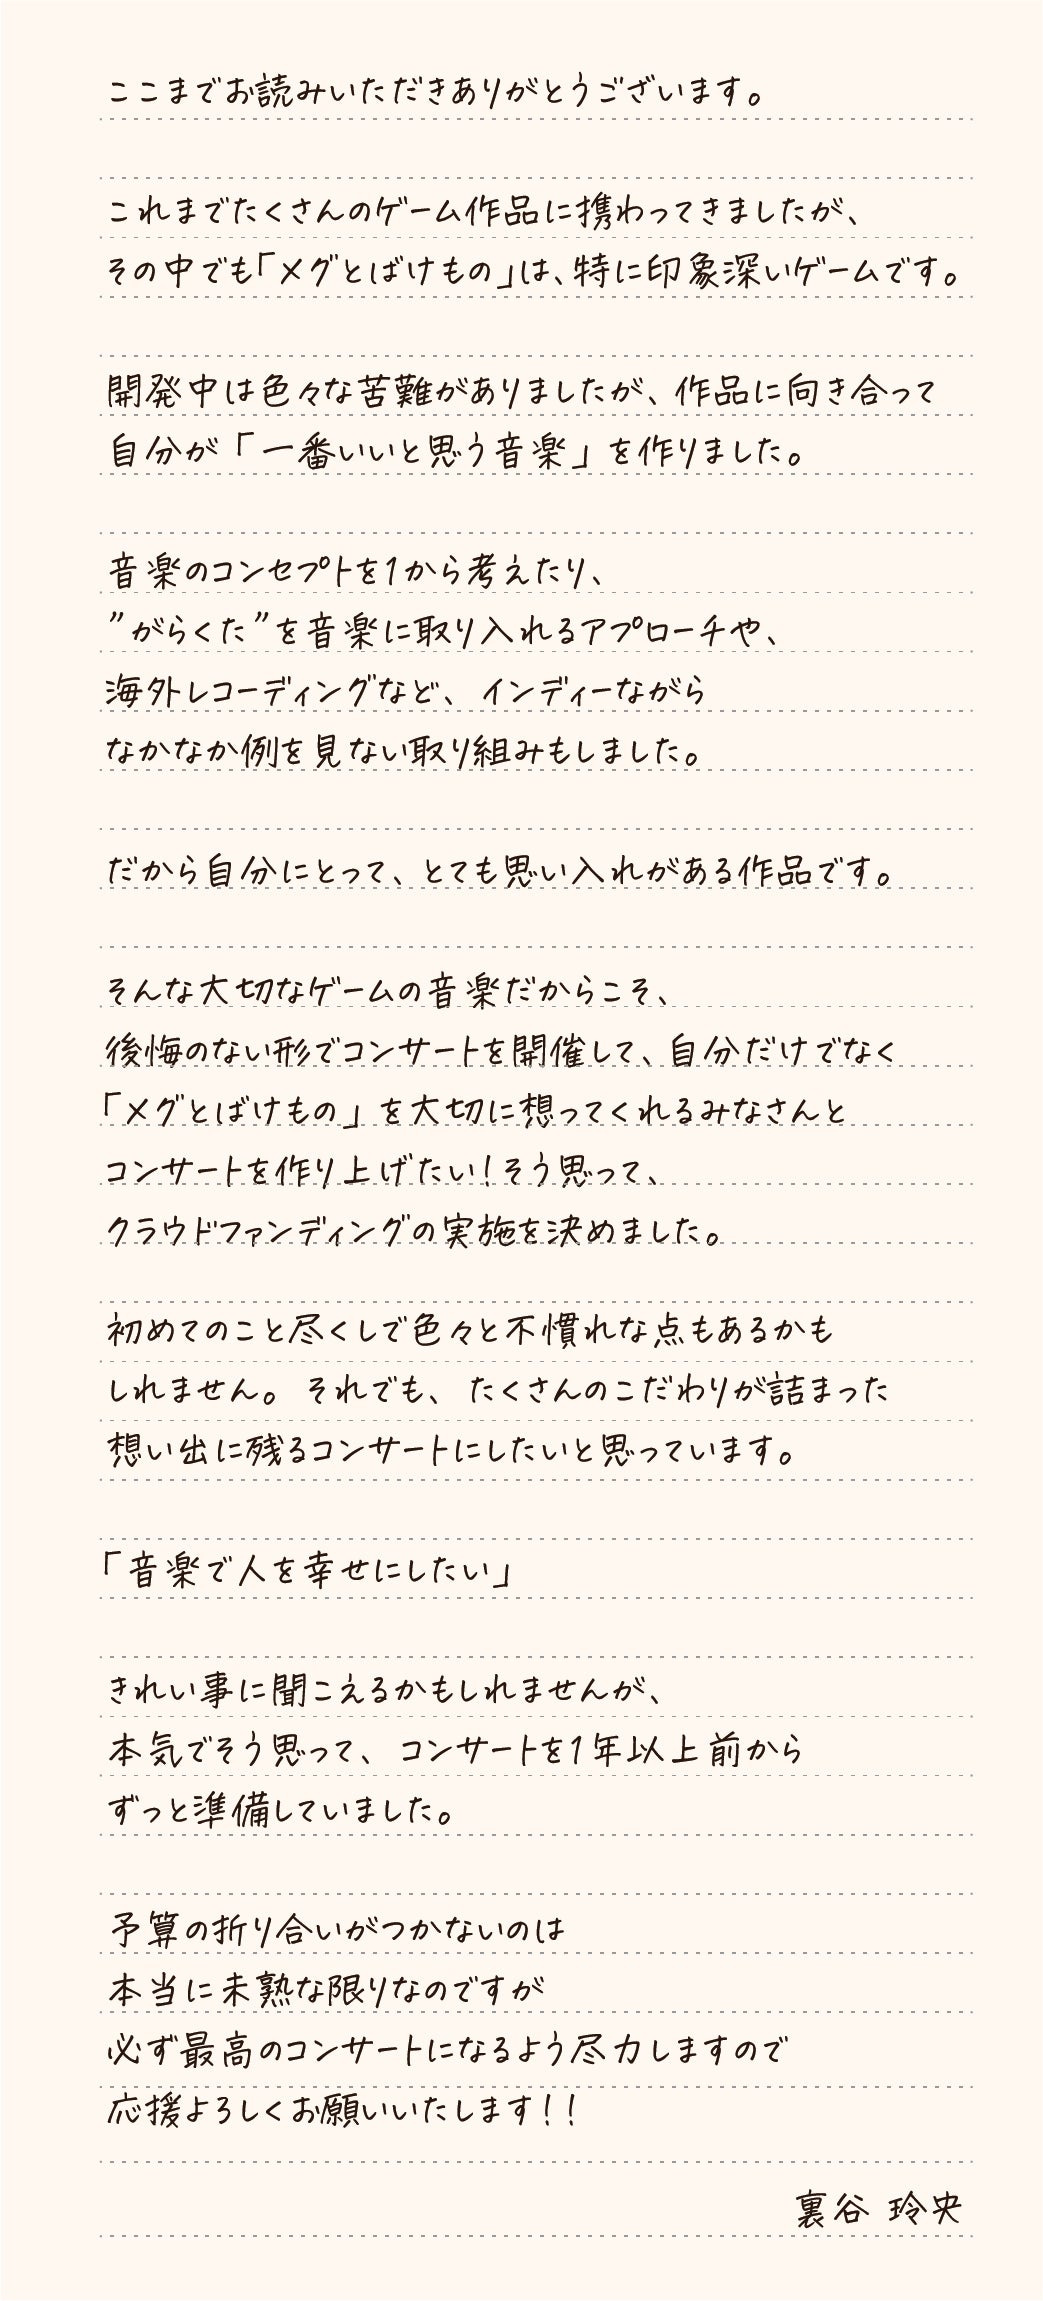 ここまでお読みいただきありがとうございます。
これまでたくさんのゲーム作品に携わってきましたが、
その中でも「メグとばけもの」は、特に印象深いゲームです。
開発中は色々な苦難がありましたが、作品に向き合って
自分が「一番いいと思う音楽」を作りました。
音楽のコンセプトを1から考えたり、
”がらくた”を音楽に取り入れるアプローチや、
海外レコーディングなど、インディーながら
なかなか例を見ない取り組みもしました。
だから自分にとって、とても思い入れがある作品です。
そんな大切なゲームの音楽だからこそ、
後悔のない形でコンサートを開催して、自分だけでなく
「メグとばけもの」を大切に想ってくれるみなさんと
コンサートを作り上げたい！そう思って、
クラウドファンディングの実施を決めました。
初めてのこと尽くしで色々と不慣れな点もあるかも
しれません。それでも、たくさんのこだわりが詰まった
想い出に残るコンサートにしたいと思っています。
「音楽で人を幸せにしたい」
きれい事に聞こえるかもしれませんが、
本気でそう思って、コンサートを1年以上前から
ずっと準備していました。
予算の折り合いがつかないのは
本当に未熟な限りなのですが
必ず最高のコンサートになるよう尽力しますので
応援よろしくお願いいたします！！
裏谷 玲央